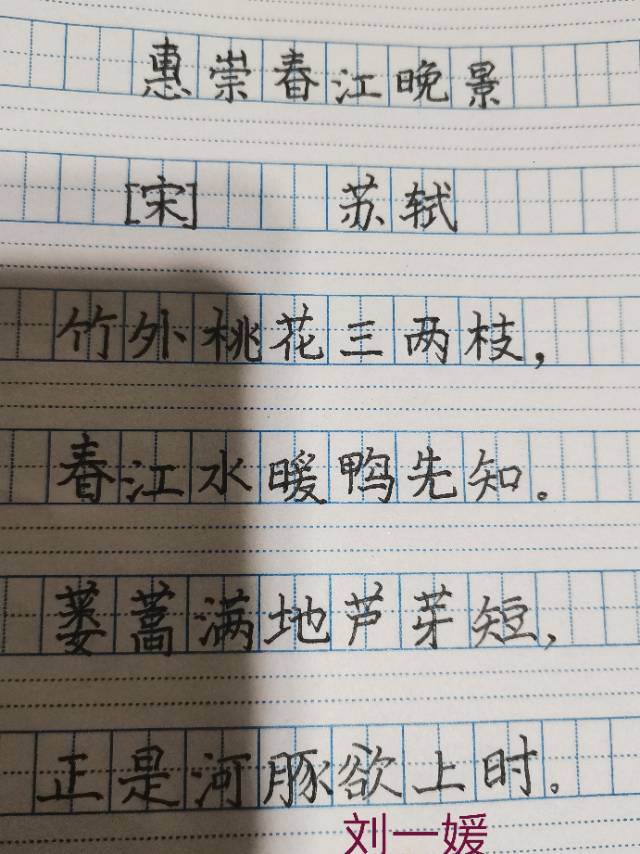 惠崇春江晚景
[宋] 苏轼
竹外桃花三两枝，
春江水暖鸭先知。
蒌蒿满地芦芽短，
正是河豚欲上时。
刘一媛